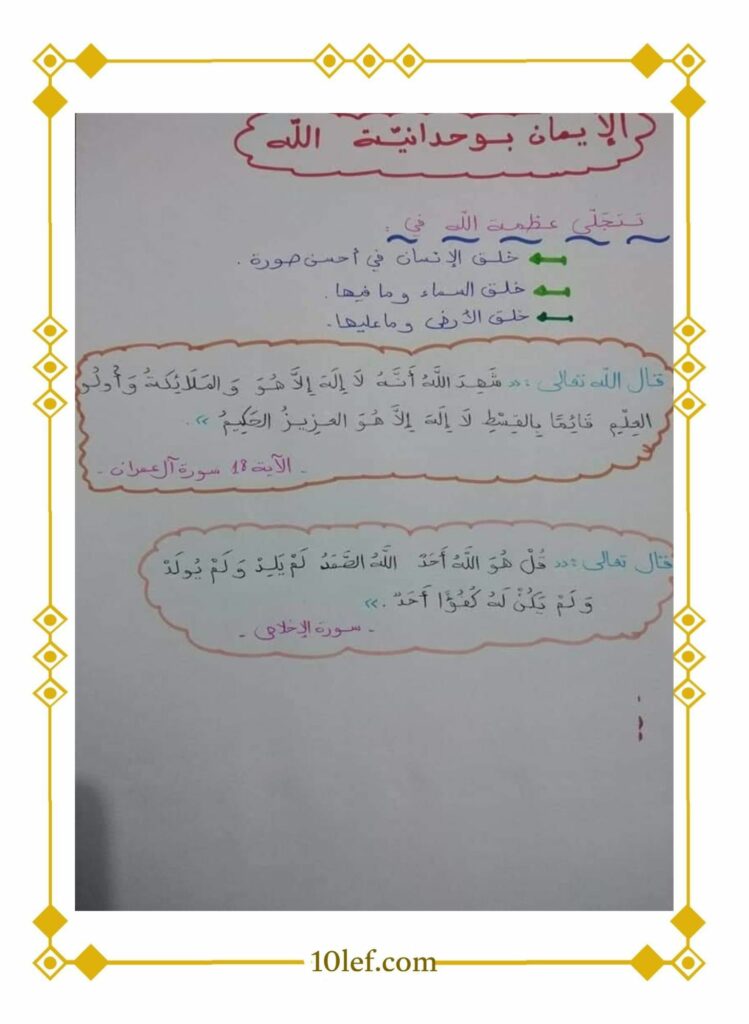 الإيمان بوحدانيّة اللّه
تتجَلّى عظمة اللّه في :
خلق الإنسان في أحسن صورة .
خلق السماء وما فيها .
خلق الأرض وما عليها .
قال اللّه تعالى : « شَهِدَ اللَّهُ أَنَّهُ لَا إِلَهَ إِلاَّ هُوَ وَالمَلَائِكَةُ وَأُولُو
العِلْمِ قَائِمًا بِالقِسْطِ لَا إِلَهَ إِلاَّ هُوَ العَزِيزُ الحَكِيمُ » .
- الآية 18 سورة آل عمران -
قال تعالى : « قُلْ هُوَ اللَّهُ أَحَدٌ اللَّهُ الصَّمَدُ لَمْ يَلِدْ وَلَمْ يُولَدْ
وَلَمْ يَكُنْ لَهُ كُفُؤًا أَحَدٌ . »
- سورة الإخلاص -
10lef.com